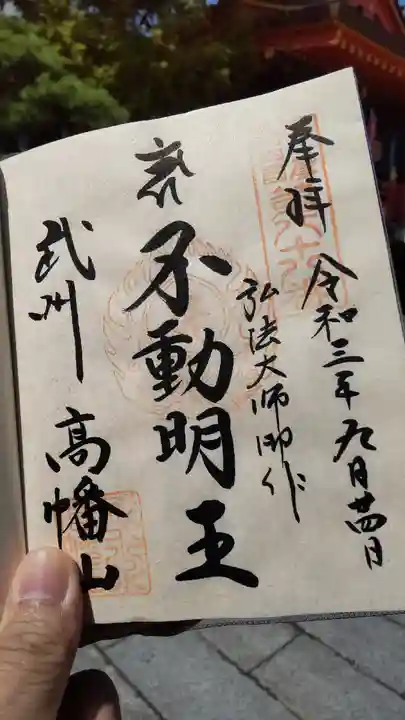 奉拝 令和三年九月廿四日
弘法大師御作
不動明王
武州 高幡山